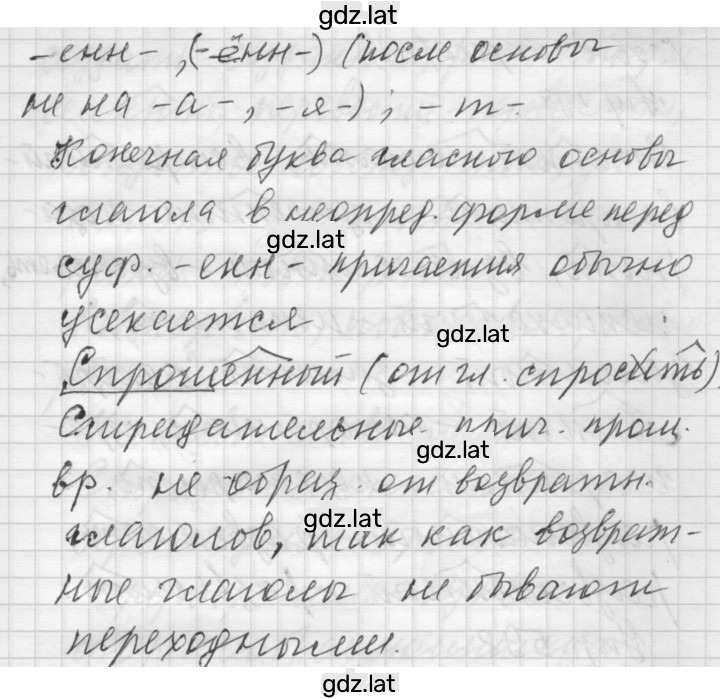 gdz.lat
-енн-, (-ённ-) (после основы
не на -а-, -я-); -т-.
Конечная буква гласного основы
глагола в неопред. форме перед
gdz.lat
суф. -енн- причастия обычно
усекается
gdz.lat
Спрошенный (от гл. спросить).
Страдательные прич. прош.
gdz.lat
вр. не образ. от возвратн.
gdz.lat
глаголов, так как возврат-
ные глаголы не бывают
переходными.
gdz.lat